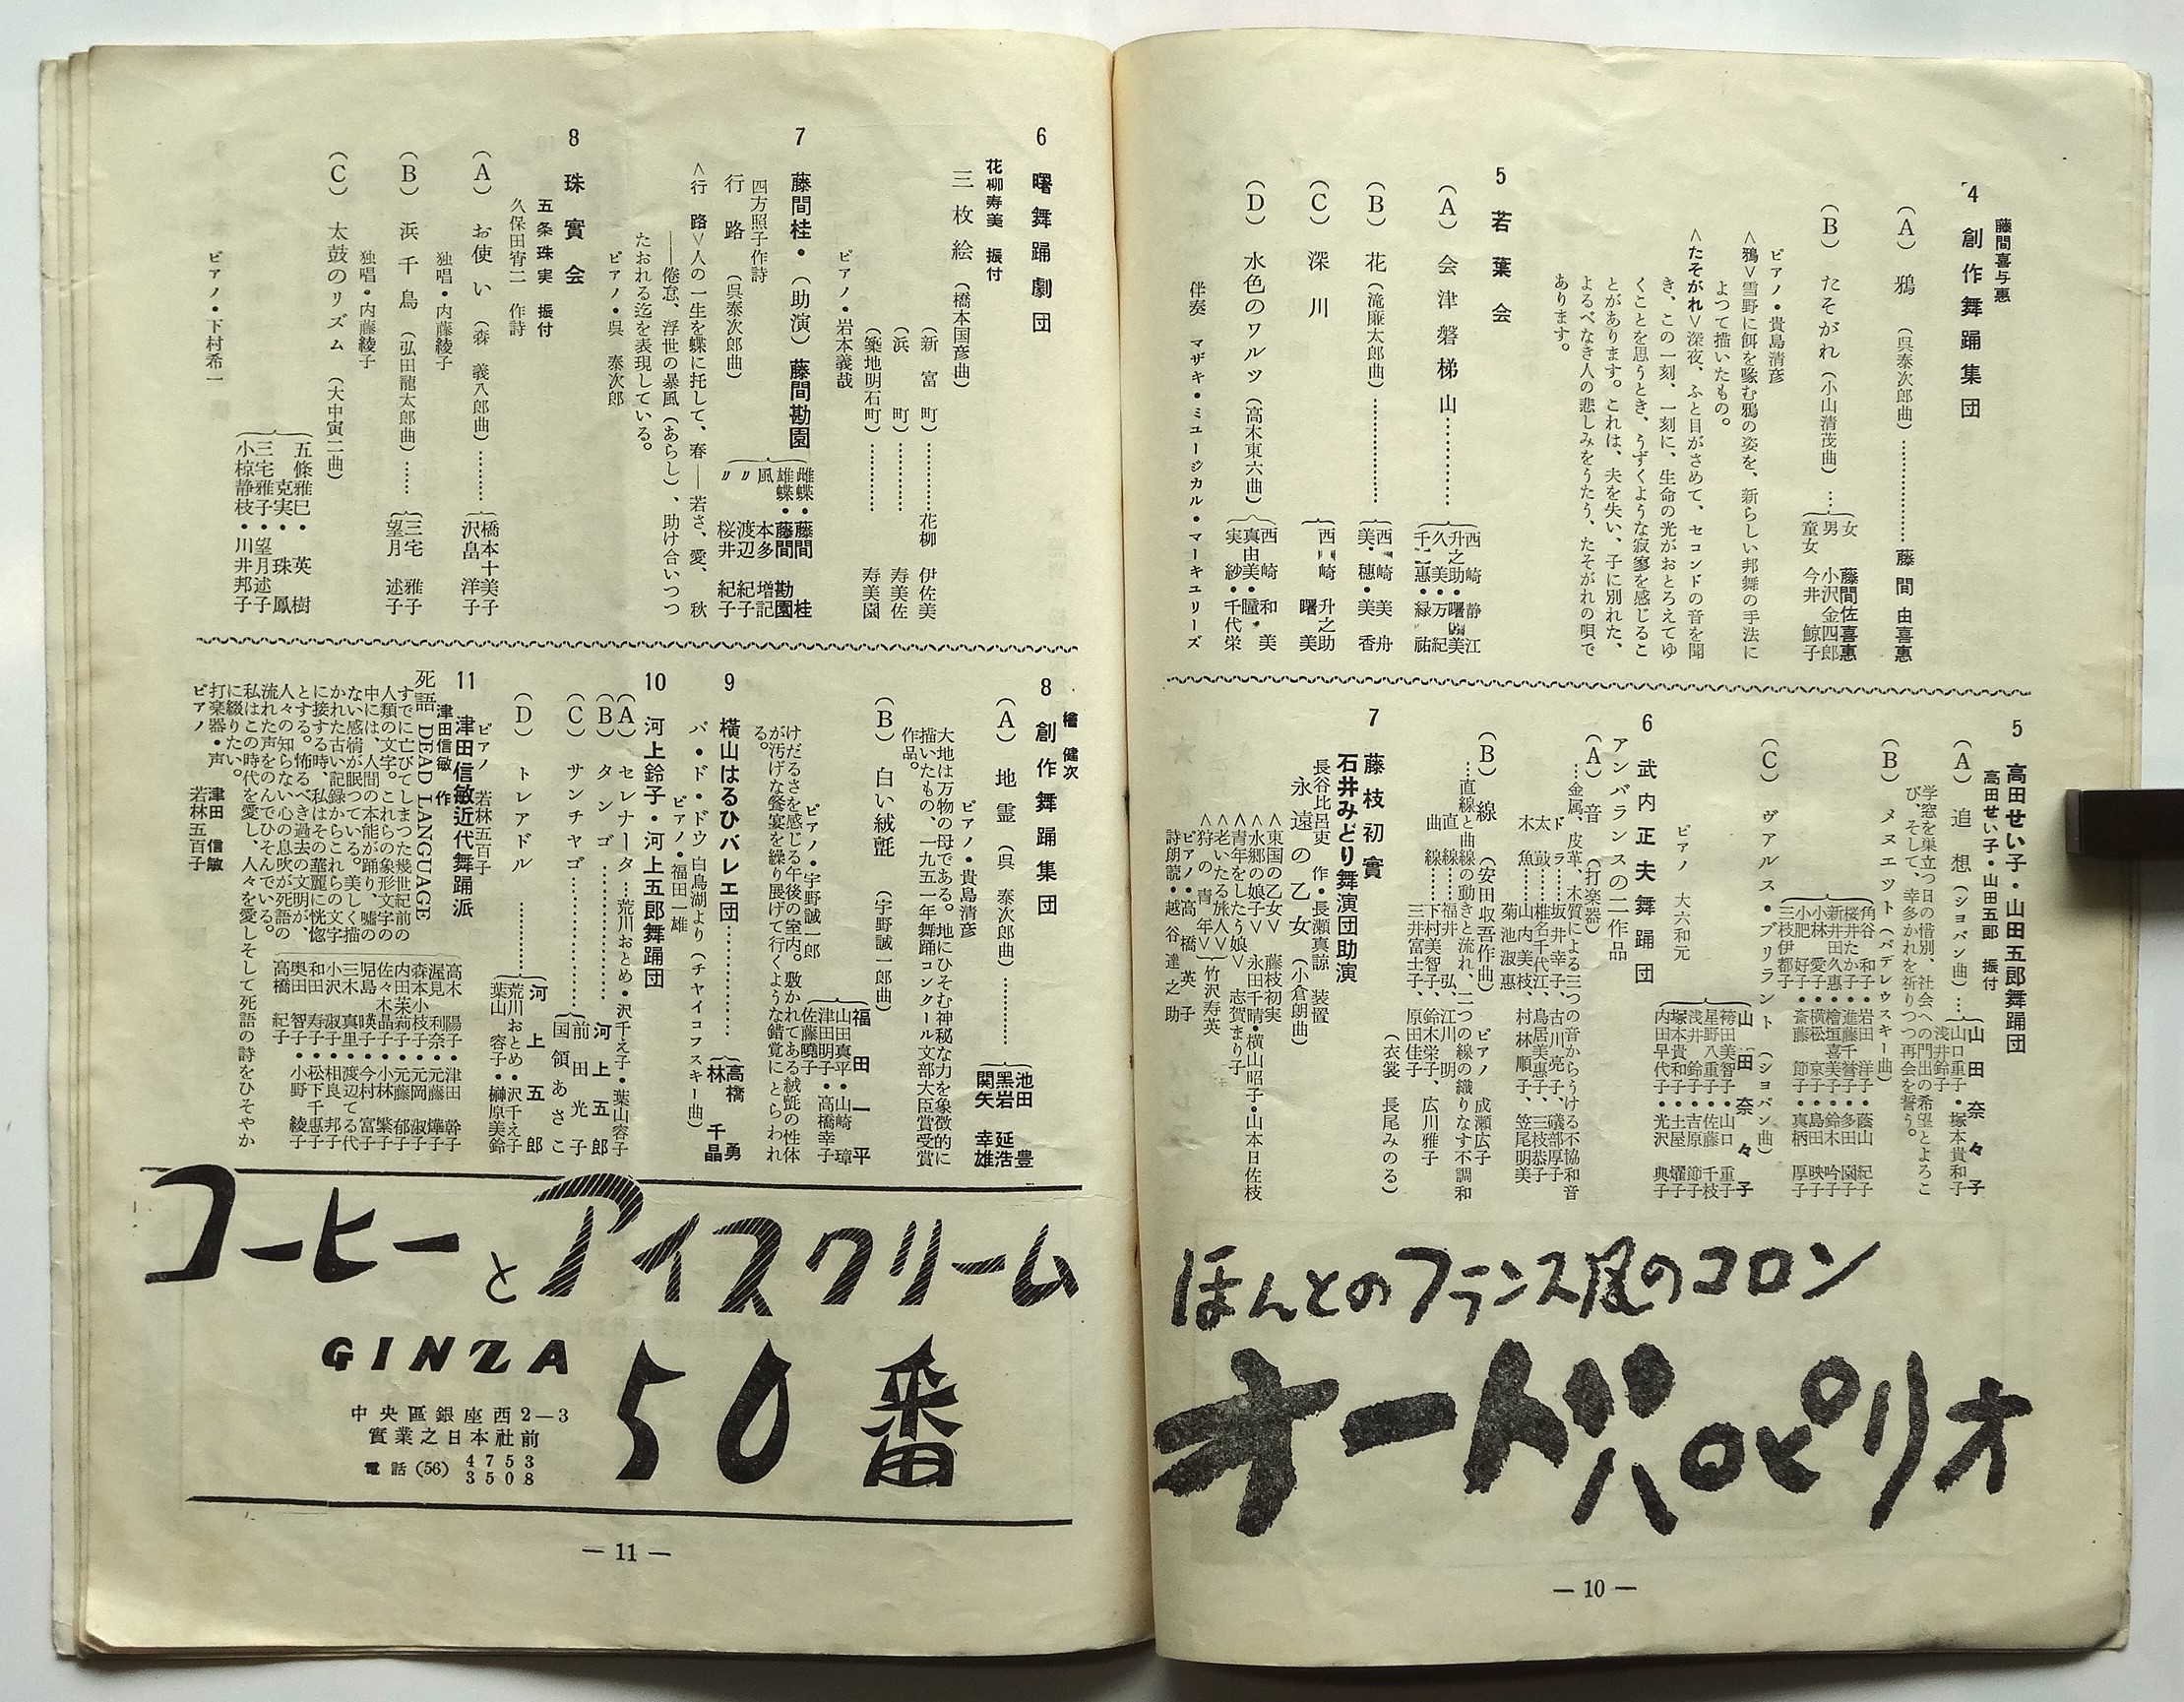 藤間喜与惠
4 創作舞踊集団
（A） 鴉 （呉泰次郎曲）…………… 藤間由喜惠
（B） たそがれ（小山清茂曲）…
女 藤間佐喜惠
男 小沢金四郎
童女 今井 鯨子
ピアノ・貴島清彦
＜鴉＞雪野に餌を啄む鴉の姿を、新らしい邦舞の手法に
よつて描いたもの。
＜たそがれ＞深夜、ふと目がさめて、セコンドの音を聞
き、この一刻、一刻に、生命の光がおとろえてゆ
くことを思うとき、うずくような寂寥を感じるこ
とがあります。これは、夫を失い、子に別れた、
よるべなき人の悲しみをうたう、たそがれの唄で
あります。
5 若葉会
（A） 会津磐梯山…………
西崎 静江
升之助・曙美
久美・万紀
千惠・緑祐
（B） 花（滝廉太郎曲）……………
西崎 美舟
美穗・美香
（C） 深川
西崎 升之助
曙美
（D） 水色のワルツ（高木東六曲）
西崎 和美
真由美・瞳・
実紗・千代栄
伴奏 マザキ・ミユージカル・マーキユリーズ
5 高田せい子・山田五郎舞踊団
高田せい子・山田五郎 振付
（A） 追想（シヨパン曲）…
山田奈々子
山口重子・塚本貴和子
浅井鈴子
学窓を巣立つ日の惜別、社会への門出の希望とよろこ
び、そして、幸多かれを祈りつつ再会を誓う。
（B） メヌエット（パデレウスキー曲）
角谷 和子・岩田 洋子・蔭山 紀子
桜井たか子・進藤千誉子・多田 園子
新井田久惠・檜垣喜美子・鈴木 吟子
小林 愛子・横松 京子・島田 映子
小肥 好子・斎藤 節子・真柄 厚子
三枝伊都子
（C） ヴアルス・ブリラント（シヨパン曲）
山田奈々子
袴田美智子・山口 重子
星野八重子・佐藤 千枝
浅井 鈴子・吉原 節子
塚本貴和子・土屋 燿子
内田早代子・光沢 典子
ピアノ 大六和元
6 武内正夫舞踊団
アンバランスの二作品
（A） 音 （打楽器）
…金属、皮革、木質による三つの音からうける不協和音
ドラ……坂井幸子、古川亮子、礒部厚子
太鼓……椎名千代江、鳥居美惠子、三枝恭子
木魚……山内美枝、村林順子、笠尾明美
菊池淑惠
（B） 線 （安田収吾作曲） ピアノ 成瀬広子
…直線と曲線の動きと流れ、二つの線の織りなす不調和
直線……福井 弘、江川 明
曲線……下村美智子、鈴木栄子、広川雅子
三井富士子、原田佳子
（衣裳 長尾みのる）
7 藤枝初實
石井みどり舞演団助演
長谷比呂吏 作・長瀬真諒 装置
永遠の乙女 （小倉朗曲）
＜東国の乙女＞ 藤枝初実
＜水郷の娘子＞ 永田千晴・横山昭子・山本日佐枝
＜青年をしたう娘＞ 志賀まり子
＜老いたる旅人＞
＜狩の青年＞
竹沢寿英
ピアノ・高橋英子
詩朗読・越谷達之助
ほんとのフランス風のコロン
オードパロピリオ
— 10 —
6 曙舞踊劇団
花柳寿美 振付
三枚絵（橋本国彦曲）
（新富町）…………花柳 伊佐美
（浜町）………… 寿美佐
（築地明石町）………… 寿美園
ピアノ・岩本義哉
7 藤間桂・（助演）藤間勘園
四方照子作詩
行路 （呉泰次郎曲）
雌蝶・藤間 桂
雄蝶・藤間 勘園
風 本多 増記
〃 渡辺 紀子
〃 桜井 紀子
＜行 路＞人の一生を蝶に托して、春—若さ、愛、秋
—倦怠、浮世の暴風（あらし）、助け合いつつ
たおれる迄を表現している。
ピアノ・呉 泰次郎
8 珠實会
五条珠実 振付
久保田宵二 作詩
（A） お使い（森 義八郎曲）………
橋本十美子
沢畠 洋子
独唱・内藤綾子
（B） 浜千鳥（弘田龍太郎曲）……
三宅 雅子
望月 述子
独唱・内藤綾子
（C） 太鼓のリズム （大中寅二曲）
五條雅巳・英樹
克実・珠鳳
三宅雅子・望月述子
小椋静枝・川井邦子
ピアノ・下村希一
檜 健次
8 創作舞踊集団
（A） 地霊（呉 泰次郎曲）…………
池田 豊
黒岩 延浩
関矢 幸雄
ピアノ・貴島清彦
大地は万物の母である。地にひそむ神秘な力を象徴的に
描いたもの、一九五一年舞踊コンクール文部大臣賞受賞
作品。
（B） 白い絨氈 （宇野誠一郎曲）
福田一平
山田真平・山崎 璋
津田明子・高橋幸子
佐藤曉子
ピアノ・宇野誠一郎
けだるさを感じる午後の室内。敷かれてある絨氈の性体
が汚げな饗宴を繰り展げて行くような錯覚にとらわれ
る。
9 横山はるひバレエ団…………
高橋 勇
林 千晶
パ・ド・ドウ 白鳥湖より（チヤイコフスキー曲）
ピアノ・福田一雄
10 河上鈴子・河上五郎舞踊団
（A） セレナータ…荒川おとめ・沢千え子・葉山容子
（B） タンゴ……………河上五郎
（C） サンチヤゴ……………
前田光子
国領あさこ
（D） トレアドル……………
河上五郎
荒川おとめ・沢千え子
葉山 容子・榊原美鈴
ピアノ 若林五百子
11 津田信敏近代舞踊派
津田信敏 作
死語 DEAD LANGUAGE
すでに亡びてしまつた幾世紀前の
人類の文字。これらの象形文字の
中には、人間の本能が踊り、嘘の
ない感情が眠つている。美しく描
かれた古い記録からこれらの文字
に接する時、私はその華麗に恍惚
とする。怖るべき過去の文明が、
人々の知らない心の息吹が死語の
流れた声をのんでひそんでいる。
私はこの時代を愛し、人々を愛しそして死語の詩をひそやか
に綴りたい。
高木 陽子・津田 幹子
渥見 利奈・元藤 燁子
森本小枝子・元岡 淑子
内田茉莉子・元藤 郁子
佐々木晶子・小林 繁子
児島 瑛子・今村 富子
三木 真里・渡辺てる代
小沢 淑子・相良 邦子
和田 寿子・松下千惠子
奥田 智子・小野 綾子
高橋 紀子
打楽器・声 津田 信敏
ピアノ 若林五百子
コーヒーとアイスクリーム
GINZA 50番
中央區銀座西2—3
實業之日本社前
電話（56） 4753
3508
— 11 —